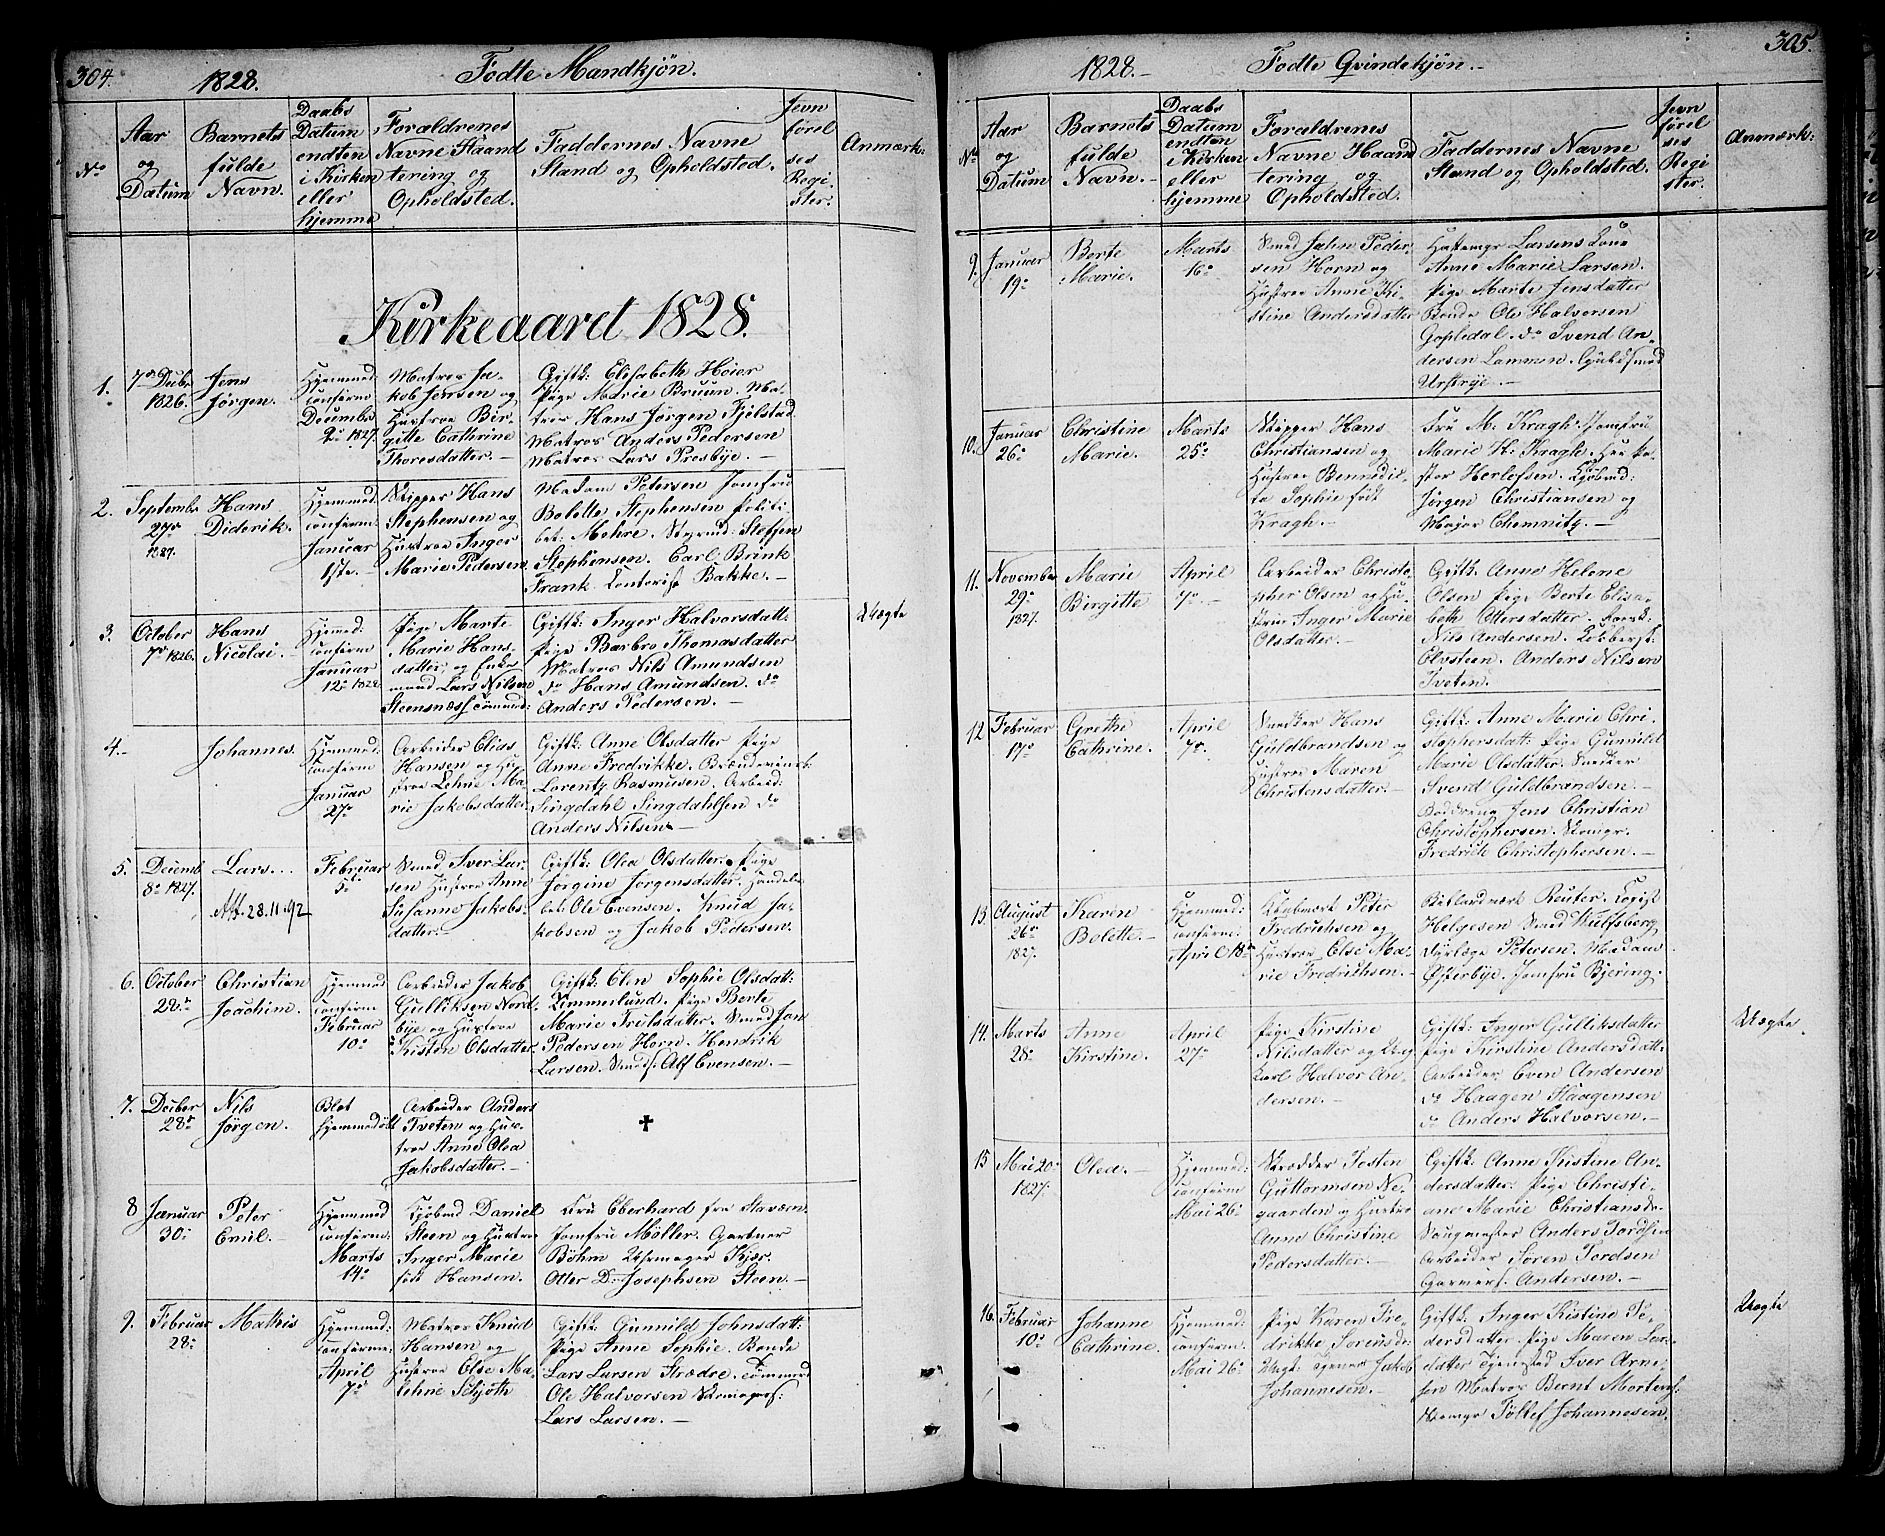 304.
1828.
Fødte Mandkjøn.
No
Aar og Datum
Barnets fulde Navn.
Daabs Datum endten i Kirken eller hjemme
Forældrenes Navne Staand tering og Opholdsted.
Faddernes Navne Stand og Opholdsted.
Jevn førel ses Regi ster.
Anmærk:
Kirkeaaret 1828.
1.
7de Decbr 1826.
Jens Jörgen.
Hjemmed: confirm Decembr 2: 1827.
Matros Jakob Jensen og Hustroe Birgitte Cathrine Thoresdatter.
Giftk: Elisabeth Höier Pige Marie Bruun. Matros Hans Jörgen Fjelstad Matros Anders Pedersen Matros Lars Presbye.
2.
Septembr 27de
Hans Diderik.
Hjemmed: confirm Januar 1ste.
Skipper Hans Stephensen og Hustroe Inger Marie Pedersen
Madam Petersen Jomfru Bolette Stephensen Politibet: Mehre. Styrmd: Steffen Stephensen. Carl Brink Frank Contorist Bakke.
3.
October 7de 1826.
Hans Nicolai.
Hjemmed: confirm Januar 12: 1828
Pige Marte Marie Hansdatter og Enkemand Lars Nilsen
Giftk: Inger Halvorsdatt: Pige Barbro Thomasdatter Matros Nils Amundsen do Hans Amundsen. do Anders Pedersen.
Uægte
4.
Johannes.
Hjemmed: confirm Januar 27de
Arbeider Elias Hansen og Hustroe Lehne Marie Jakobsdatter.
Giftk: Anne Olsdatter Pige Anne Fredrikke. Lorentz Rasmusen. Arbeid: Singdahl Singdahlsen do Anders Nilsen
5.
Decemb 8: 1827.
Lars.
Att 28.11.92
Februar 5:
Smed Iver Larsen Hustroe Anne Susanne Jakobsdatter.
Giftk: Olea Olsdatter. Pige Jörgine Jörgensdatter. Ole Evensen. Knud Jakobsen og Jakob Pedersen.
6.
October 28:
Christian Joachim.
Hjemmed confirm Februar 10:
Arbeider Jakob Gulliksen Nordbye og Hustroe Kisten Olsdatter.
Giftk: Elen Sophie Olsdatt: Pige Berte Marie Trulsdatter. Smed Jan Pedersen Horn. Hendrik Larsen. Alf Evensen.
7.
Decber 28:
Nils Jörgen.
Blot hjemmedöbt
Arbeider Anders Tveten og Hustroe Anne Olea Jakobsdatter.
✝
8
Januar 30:
Peter Emil.
Hjemmed confirm: Marts 14:
Daniel Steen og Hustroe Inger Marie föd Hansen.
Fru Eberhard fra Staværn. Jomfru Möller. Gartner Böhm Uhrmager Kjer. Otter Josephsen Steen.
9.
Februar 28:
Mathis
Hjemmed: confirm: April 7de
Matros Knud Hansen og Hustroe Else Malehne Schjöth
Giftk: Gunnild Johnsdatt: Pige Anne Sophie. Bonde Lars Larsen Strædre. Ole Halvorsen Lars Larsen.
305.
1828.
Fødte Qvindekjøn.
No
Aar og Datum
Barnets fulde Navn.
Daabs Datum endten i Kirken eller hjemme
Forældrenes Navne Haand tering og Opholdsted.
Faddernes Navne Stand og Opholdsted.
Jevn førel ses Regi ster.
Anmærk:
9.
Januar 19:
Berte Marie.
Marts 16:
Smed Jahn Pedersen Horn og Hustroe Anne Kistine Andersdatter
Larsens Kone Anne Marie Larsen. Pige Marte Jensdatter Bonde Ole Halvorsen Gopledal. do Svend Andersen Lammen.
10.
Januar 26:
Christine Marie.
Marts 25:
Skipper Hans Christiansen og Hustroe Bennedikta Sophie födt Kragh.
Fru M. Kragh. Jomfru Marie H: Kragh. Her Pastor Herlofsen. Jörgen Christiansen og Major Chemnitz.
11.
November 29: 1827.
Marie Birgitte
April 7de
Arbeider Christopher Olsen og Hustroe Inger Marie Olsdatter.
Giftk: Anne Helene Olsen Pige Berte Elisabeth Ottersdatter. Nils Andersen. Elvsteen. Anders Nilsen Tveten.
12
Februar 17:
Grethe Cathrine.
April 7de.
Snedker Hans Guldbrandsen og Hustroe Maren Christensdatter.
Giftk: Anne Marie Christophersdatt: Pige Gunnild Marie Olsdatter. Svend Guldbrandsen. Jens Christian Christophersen. Fredrich Christophersen.
13.
August 26: 1827.
Karen Bolette.
Hjemmed: confirm: April 18de
Peter Fredrichsen og Hustroe Else Marie Fredrichsen.
Reuter. Helgesen Smed Wulfsberg Dyrlæge Petersen. Madam Österbye. Jomfru Bjering.
14.
Marts 28:
Anne Kirstine.
April 27:
Pige Kirstine Nilsdatter og Ungkarl Halvor Andersen.
Giftk: Inger Gulliksdatter Pige Kirstine Andersdatt: Arbeider Even Andersen do Haagen Haagensen do Anders Halvorsen.
Uægte
15
Mai 20: 1827.
Olea.
Hjemmed: confirm Mai 26:
Skrædder Josten Guttormsen Negaarden og Hustroe Anne Christine Pedersdatter.
Giftk: Anne Kistine Andersdatter. Pige Christiane Marie Christiansdr. Anders Tordsen Arbeider Sören Tordsen Garvers: Andersen.
16.
Februar 10:
Johanne Cathrine.
Hjemmed: confirm: Mai 26:
Pige Karen Fredrikke Sörensdr. Ungk: Tjener Jakob Johannesen.
Giftk: Inger Kistine Pedersdatter. Pige Maren Larsdatter Iver Arnesen Matros Bernt Mortens: Töllef Johannesen.
Uægte